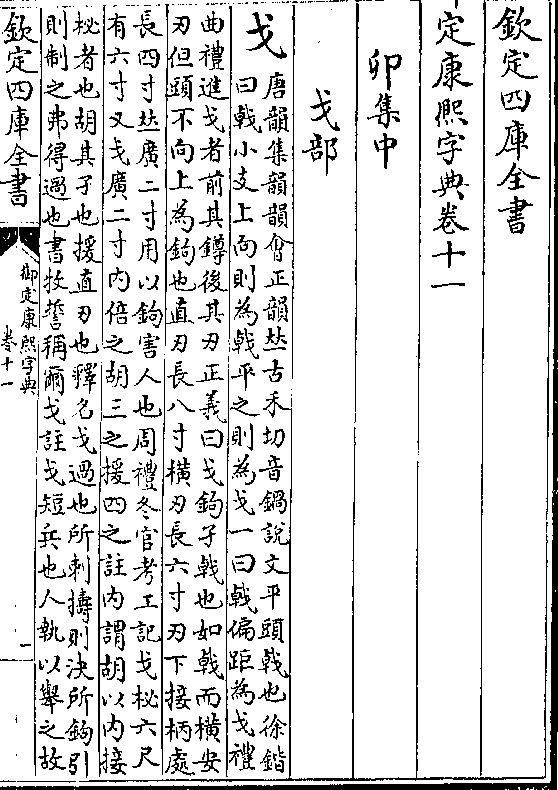 欽定四庫全書
定康熙字典卷十一
卯集中
戈部
戈 唐韻集韻韻會正韻𠀤古禾切音鍋說文平頭戟也徐鍇
曰戟小支上向則為戟平之則為戈一曰戟偏距為戈禮
曲禮進戈者前其鐏後其刃正義曰戈鉤孑戟也如戟而橫安
刃但頭不向上為鉤也直刃長八寸橫刃長六寸刃下接柄處
長四寸𠀤廣二寸用以鉤害人也周禮冬官考工記戈柲六尺
有六寸又戈廣二寸內倍之胡三之援四之註內謂胡以內接
柲者也胡其孑也援直刃也釋名戈過也所刺擣則決所鉤引
則制之弗得過也書牧誓稱爾戈註戈短兵也人執以舉之故
欽定四庫全書
御定康熙字典
卷十一
一